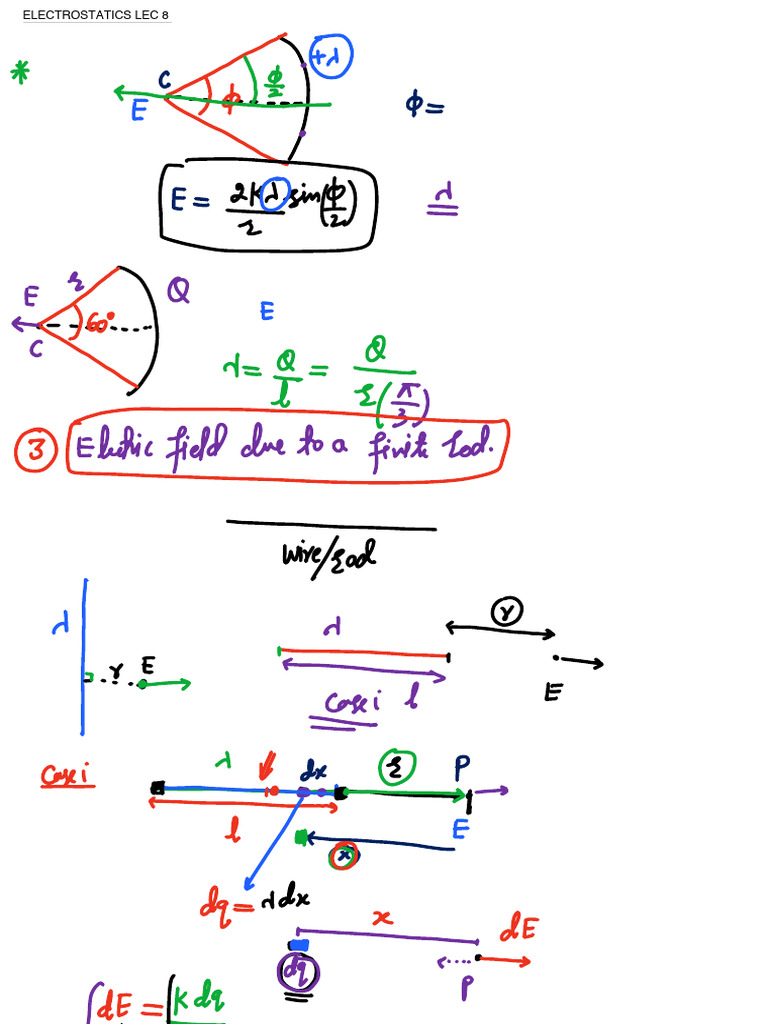 ELECTROSTATICS LEC 8
*
+λ
C
ϕ
ϕ/2
E
ϕ=
E = 2Kλ/r sin(ϕ/2)
λ
E
r
Q
60°
C
E
λ = Q/l = Q/r(π/3)
3 Electric field due to a finite rod.
wire/rod
λ
r
E
λ
r
E
Case i
l
Case i
λ
dx
r
P
l
E
x
dq = λdx
x
dE
dq
P
∫dE = ∫K dq